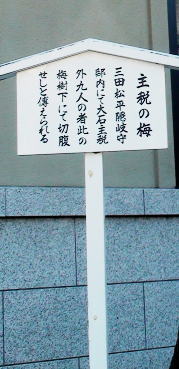 主税の梅
三田松平隠岐守
邸内にて大石主税
外九人の者此の
梅樹下にて切腹
せしと傳えられる